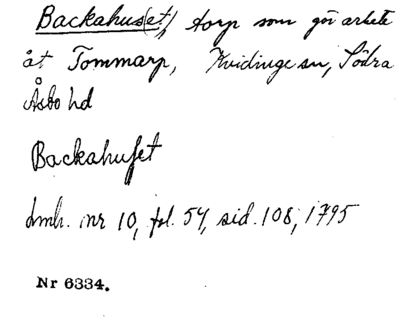 Backahus(et), torp som gör arbete
åt Tommarp, Kvidinge sn, Södra
Åsbo hd
Backahuset
Lmh. nr 10, fol. 54, sid. 108, 1795
Nr 6334.